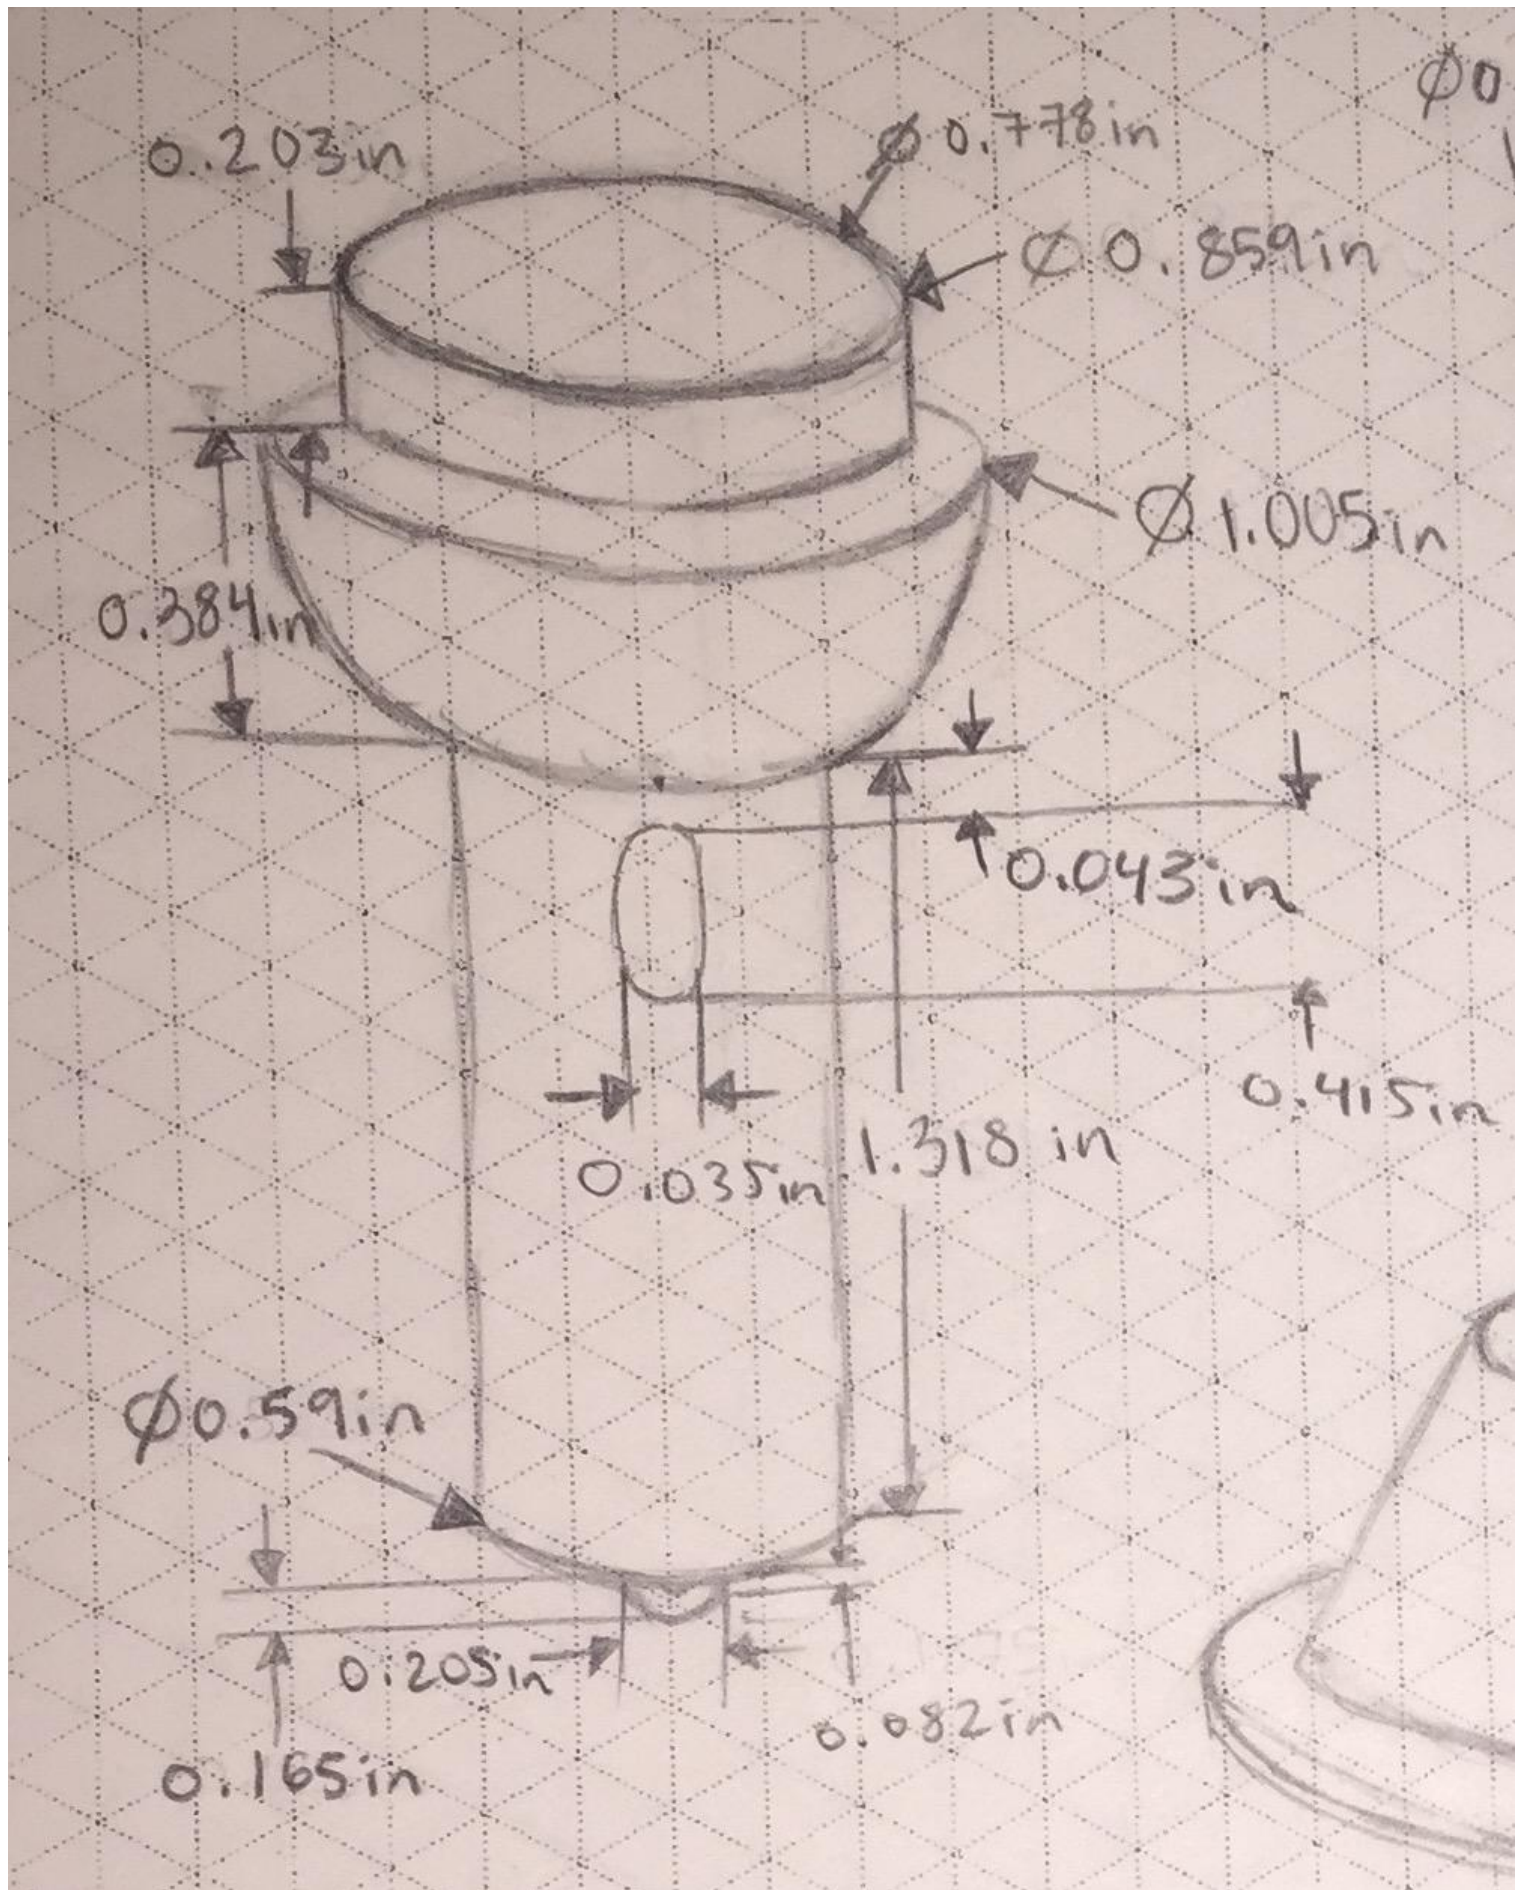 Ø0
0.203in
Ø0.778in
Ø0.859in
Ø1.005in
0.384in
0.043in
0.415in
1.318 in
0.035in
Ø0.59in
0.205in
0.082in
0.165in